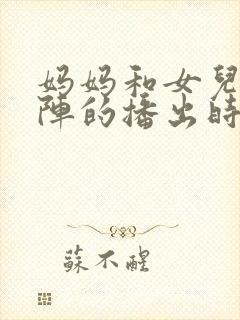 妈妈和女兒
陣的播出時
蘇不醒